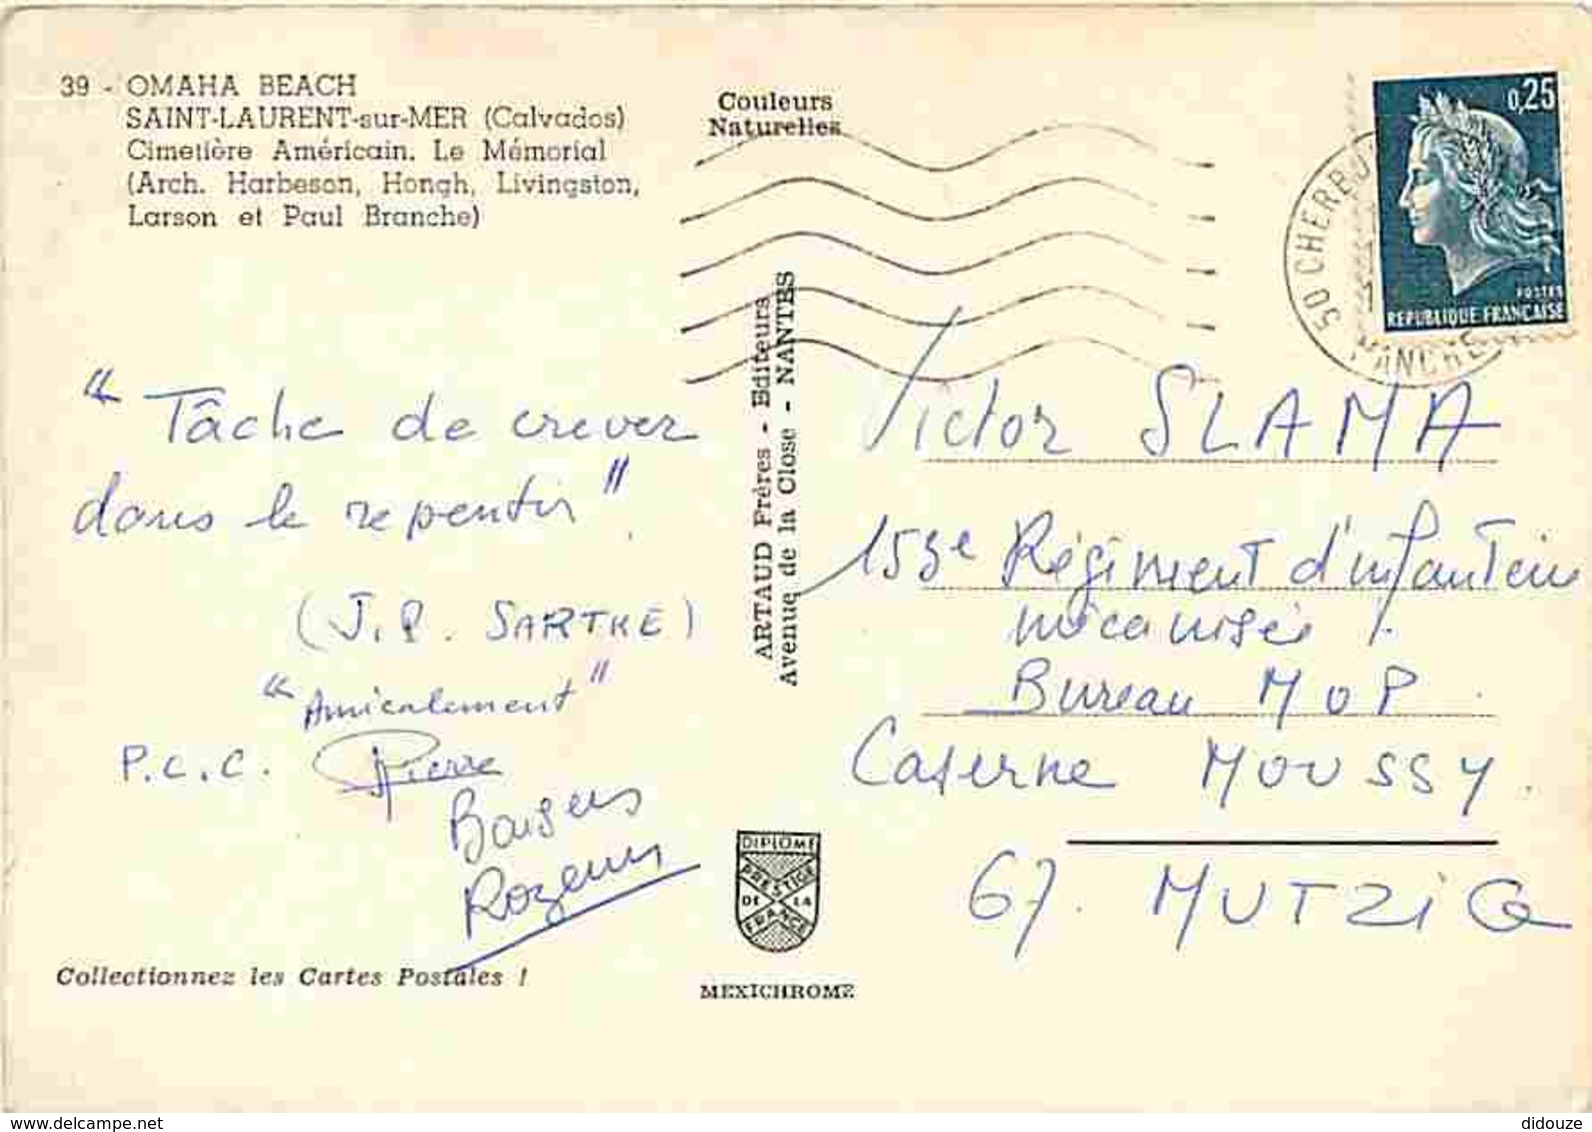 39 - OMAHA BEACH
SAINT-LAURENT-sur-MER (Calvados)
Cimetière Américain. Le Mémorial
(Arch. Harbeson, Hongh, Livingston,
Larson et Paul Branche)
Couleurs
Naturelles
0,25
POSTES
REPUBLIQUE FRANÇAISE
50 CHERBOU
MANCHE
" Tâche de crever
dans le repentir ".
(J.P. SARTRE)
" Amicalement "
P.C.C. Pierre
Baisers
ARTAUD Frères - Editeurs
Avenue de la Close - NANTES
Victor SLAMA
153e Régiment d'infanterie
mécanisée
Bureau MOP
Caserne MOUSSY
67. MUTZIG
DIPLOME
PRESTIGE
DE LA
FRANCE
MEXICHROME
Collectionnez les Cartes Postales !
delcampe.net
didouze